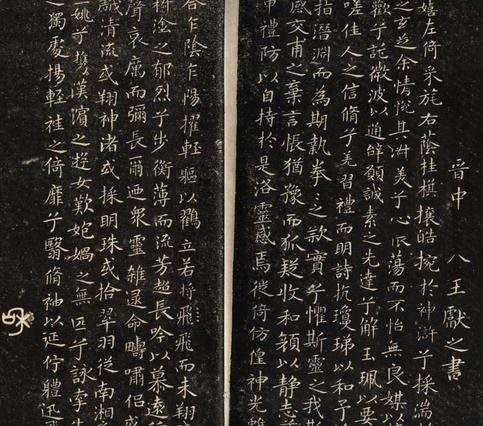 晉中 八王獻之書
嬉左倚采旄右蔭桂旗攘皓捥於神滸兮採湍
之玄芝余情悅其淑美兮心振蕩而不怡無良媒以
歡兮託微波以通辭願誠素之先達兮解玉珮以要
嗟佳人之信脩兮羌習禮而明詩抗瓊珶以和予
指潛淵而為期執拳〻之款實兮懼斯靈之我
感交甫之棄言悵猶豫而狐疑收和顏以静志
申禮防以自持於是洛靈感焉徙倚仿偟神光離
乍陰乍陽擢輕軀以鶴立若将飛飛而未翔
塗之郁烈兮步衡薄而流芳超長吟以慕遠
聲哀厲而彌長爾迺衆靈雜遝命疇嘯侶或
清流或翔神渚或採明珠或拾翠羽從南湘
姚兮攜漢濱之遊女歎匏媧之無匹兮詠牽
之獨處揚輕袿之倚靡兮翳脩袖以延佇體迅飛